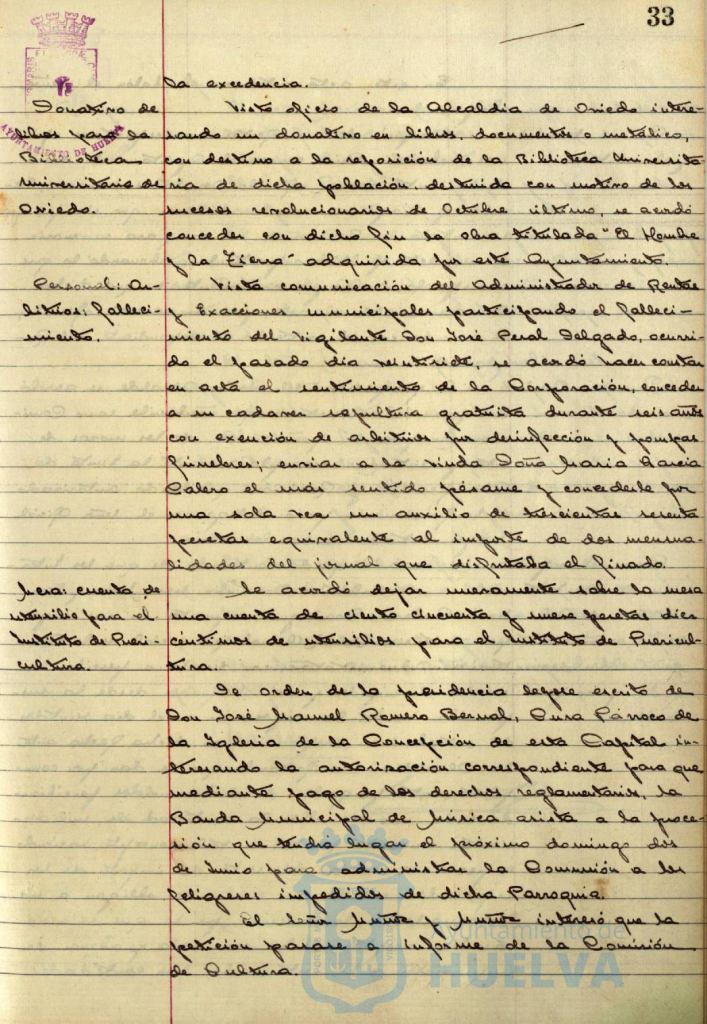 33
la excedencia.
Donativo de
libros para la
Biblioteca
Universitaria de
Oviedo.
Visto oficio de la Alcaldía de Oviedo intere-
sando un donativo en libros, documentos o metálico,
con destino a la reposición de la Biblioteca Universita
ria de dicha población, destruida con motivo de los
sucesos revolucionarios de Octubre último, se acordó
conceder con dicho fin la obra titulada "El Hombre
y la Tierra" adquirida por este Ayuntamiento.
Personal: Ar-
bitrios; falleci-
miento.
Vista comunicación del Administrador de Rentas
y Exacciones municipales participando el falleci-
miento del Vigilante Don José Peral Delgado, ocurri-
do el pasado dia veintisiete, se acordó hacer constar
en acta el sentimiento de la Corporación, conceder
a su cadaver sepultura gratuita durante seis años
con exención de arbitrios por desinfección y pompas
fúnebres; enviar a la viuda Doña Maria Garcia
Calero el más sentido pésame y concederle por
una sola vez un auxilio de trescientas sesenta
pesetas equivalente al importe de dos mensua-
lidades del jornal que disfrutaba el finado.
Mesa: cuenta de
utensilio para el
Instituto de Pueri-
cultura.
Se acordó dejar nuevamente sobre la mesa
una cuenta de ciento cincuenta y nueve pesetas diez
céntimos de utensilios para el Instituto de Puericul-
tura.
De orden de la presidencia leyose escrito de
Don José Manuel Romero Bernal, Cura Párroco de
la Iglesia de la Concepción de esta Capital in-
teresando la autorización correspondiente para que
mediante pago de los derechos reglamentarios, la
Banda Municipal de Música asista a la proce-
sión que tendrá lugar el próximo domingo dos
de Junio para administrar la Comunión a los
feligreses impedidos de dicha Parroquia.
El Señor Muñoz y Muñoz interesó que la
petición pasare a informe de la Comisión
de Cultura.
Ayuntamiento de
HUELVA